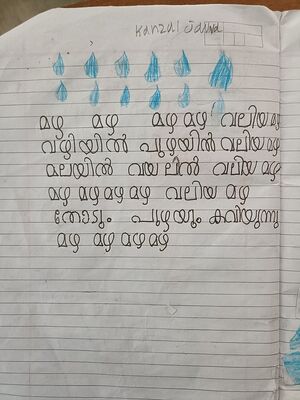 Kanzul Janna
മഴ മഴ മഴ മഴ വലിയ മഴ
വഴിയിൽ പുഴയിൽ വലിയ മഴ
മലയിൽ വയലിൽ വലിയ മഴ
മഴ മഴ മഴ മഴ വലിയ മഴ
തോടും പുഴയും കവിയുന്നു
മഴ മഴ മഴ മഴ